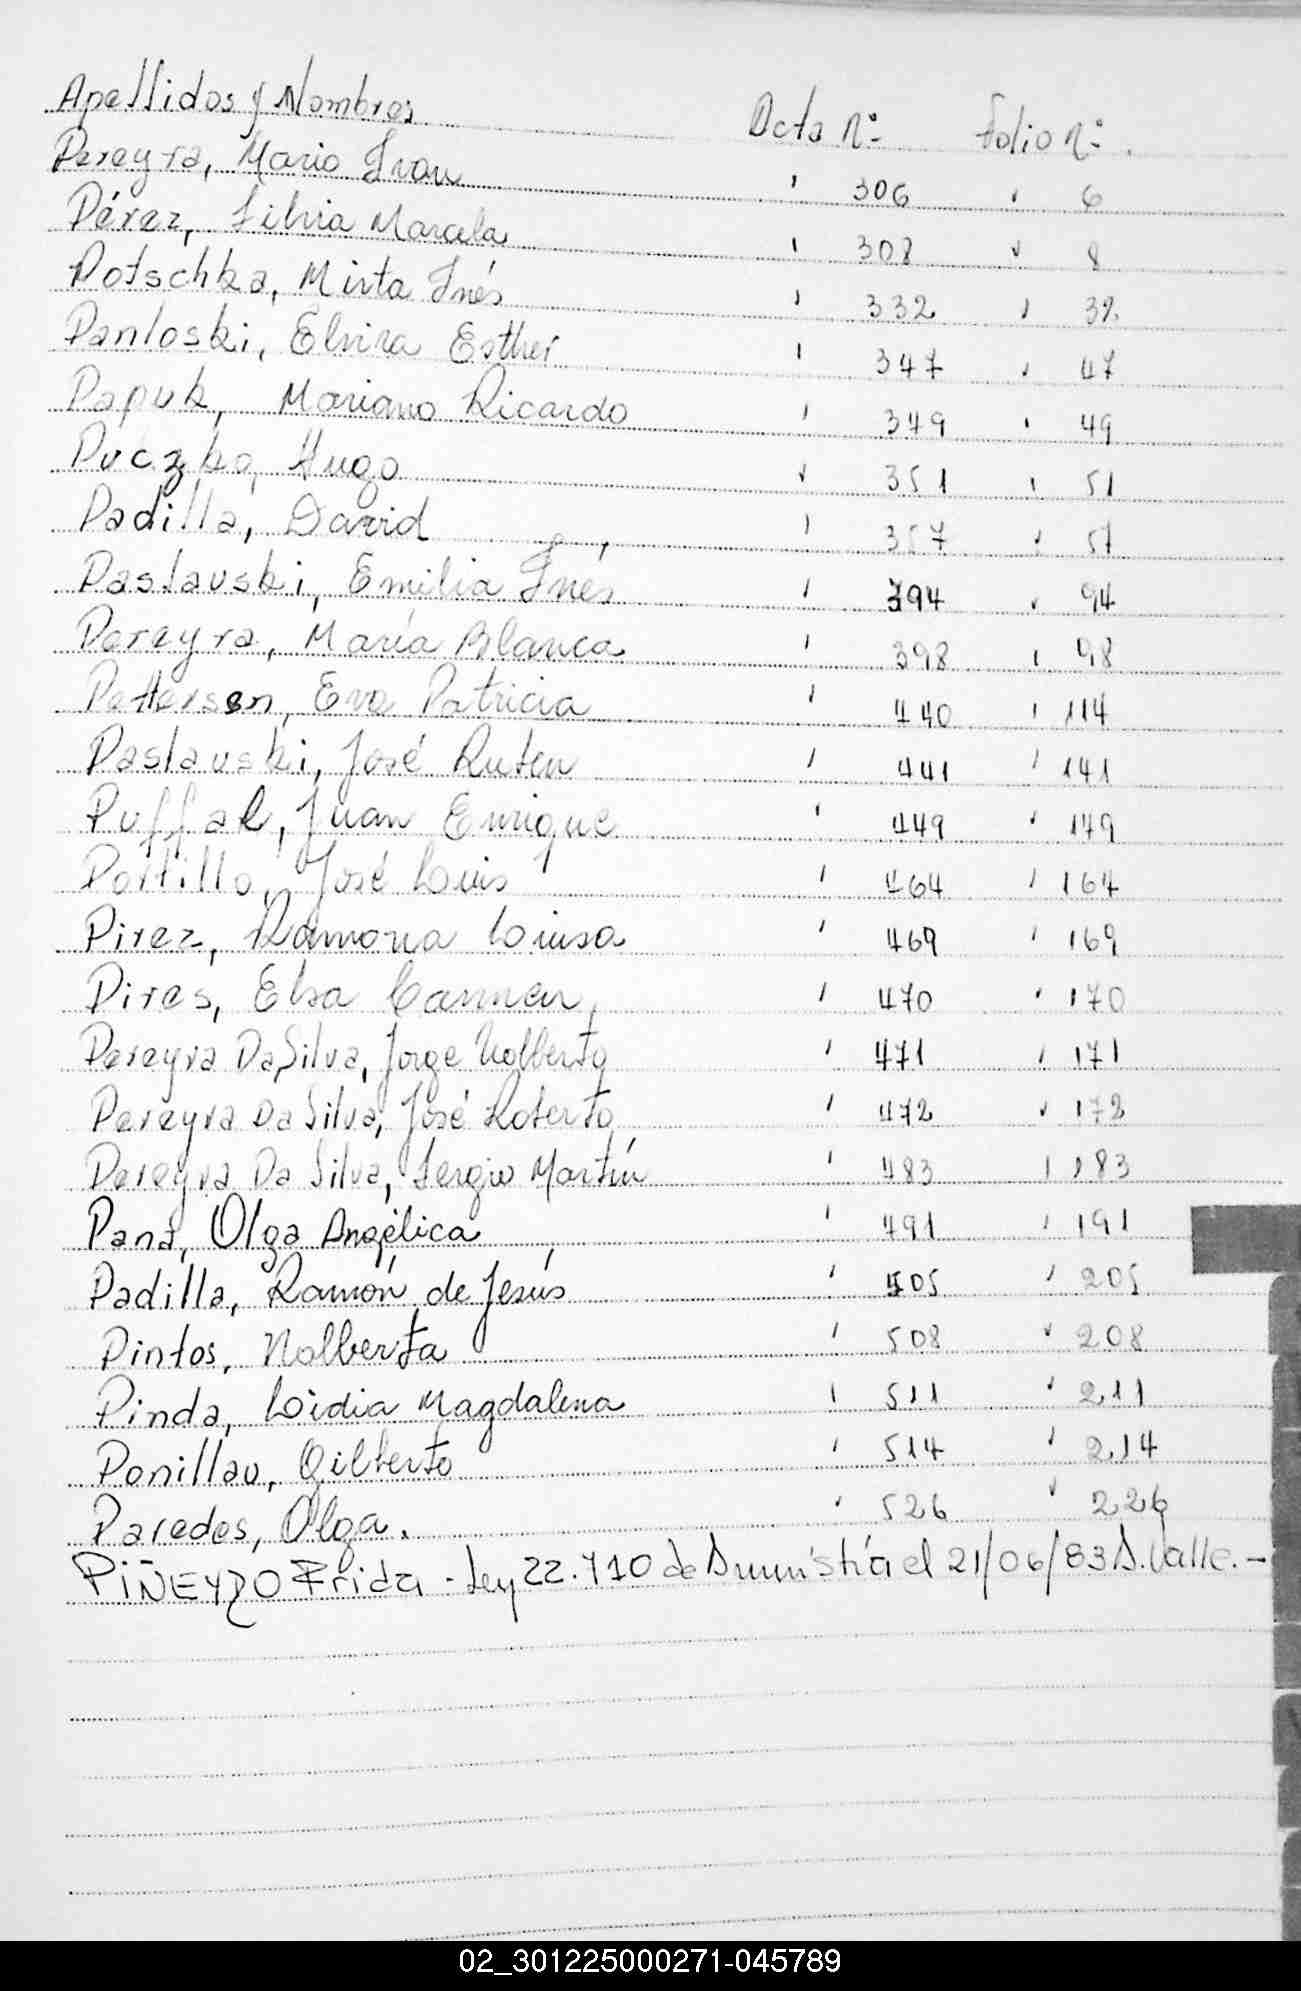 Apellidos y Nombres Acta Nº Folio Nº.
Pereyra, Mario Ivan ' 306 ' 6
Pérez, Silvia Marcela ' 308 ' 8
Potschka, Mirta Inés ' 332 ' 32
Panloski, Elvira Esther ' 347 ' 47
Papuk, Mariano Ricardo ' 349 ' 49
Puczko, Hugo ' 351 ' 51
Padilla, David ' 357 ' 57
Paslauski, Emilia Inés ' 394 ' 94
Pereyra, María Blanca ' 398 ' 98
Pettersen, Eva Patricia ' 440 ' 114
Paslauski, José Ruben ' 441 ' 141
Puffal, Juan Enrique ' 449 ' 149
Portillo, José Luis ' 464 ' 164
Pirez, Ramona Luisa ' 469 ' 169
Pires, Elsa Carmen ' 470 ' 170
Pereyra Da Silva, Jorge Nolberto ' 471 ' 171
Pereyra Da Silva, José Roberto ' 472 ' 172
Pereyra Da Silva, Sergio Martín ' 483 ' 183
Pana, Olga Angélica ' 491 ' 191
Padilla, Ramón de Jesús ' 505 ' 205
Pintos, Nolberta ' 508 ' 208
Pinda, Lidia Magdalena ' 511 ' 211
Ponillau, Gilberto ' 514 ' 214
Paredes, Olga. ' 526 ' 226
PIÑEYRO Frida - Ley 22.710 de Amnistía el 21/06/83 A. Valle. -
02_301225000271-045789